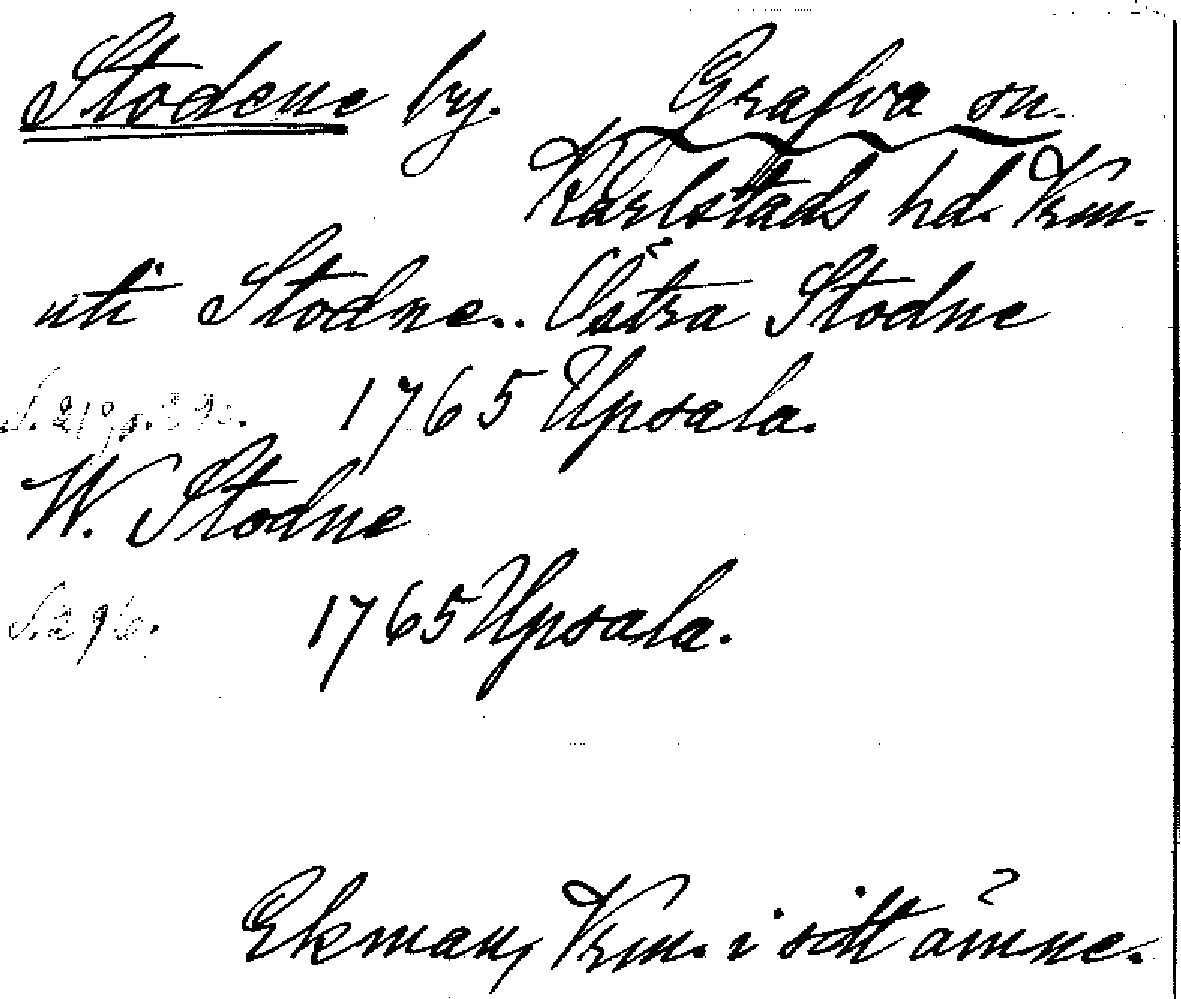 Stodene by. Grafva sn.
Karlstads hd. Vrm.
uti Stodne.. Östra Stodne
1765 Upsala.
W. Stodne
S. 296. 1765 Upsala.
Ekman, Vrm. i sitt ämne.